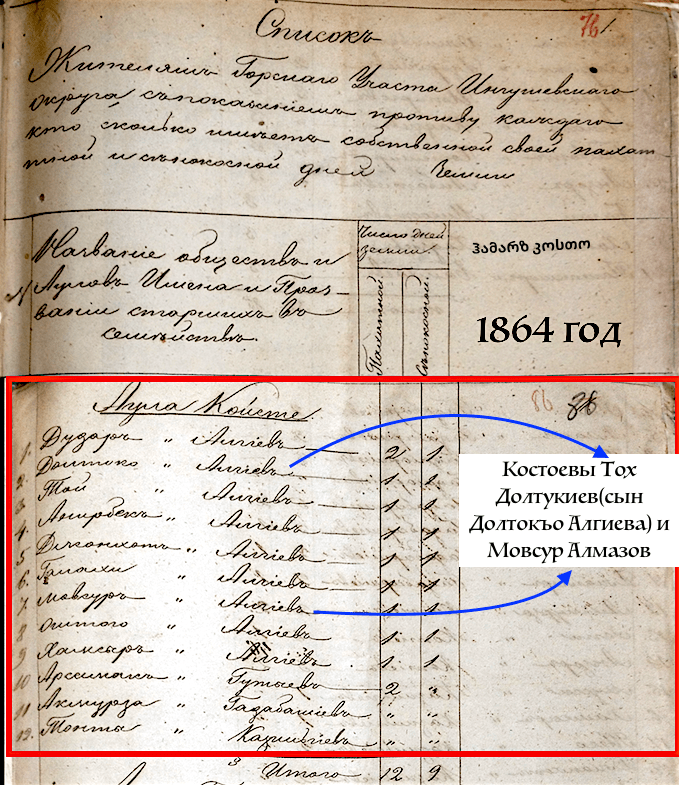 Списокъ
76
Жителямъ Горскаго Участа Ингушевскаго
округа съпоказаніемъ противу каждаго
кто сколько имѣетъ собственной своей пахат
тной и сѣнокосной дней Земли
№
Названіе обществъ и
Ауловъ Имена и Проз-
ваніи старшихъ въ
семействѣ.
Число дней
земли.
Пахатной
Сѣнокосной.
ჰამარზ კოსტო
1864 год
Аула Койсте
86 38
1. Дударъ „ Алгіевъ 2 1
2. Долтоко „ Алгіевъ 1 1
3. Той „ Алгіевъ 1 1
4. Амирбекъ „ Алгіевъ 1 1
5. „ Алгіевъ 1 1
6. „ Алгіевъ 1 1
7. Мовсуръ „ Алгіевъ 1 1
8. „ Алгіевъ 1 1
9. „ Алгіевъ 1 1
10. Арсамакъ „ Гутыевъ 2 „
11. Акмурза „ Гадабашіевъ „ „
12. Тонта „ „ „
Итого 12 9
Костоевы Тох
Долтукиев(сын
Долтокъо Алгиева) и
Мовсур Алмазов